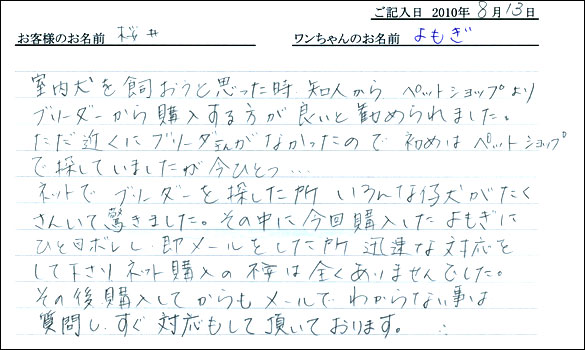 ご記入日 2010年 8月13日
お客様のお名前 桜井 ワンちゃんのお名前 よもぎ
室内犬を飼おうと思った時、知人から ペットショップより
ブリーダーから購入する方が良いと勧められました。
ただ近くにブリーダーさんがなかったので 初めは ペットショップ
で探していましたが今ひとつ…
ネットで ブリーダーを探した所 いろんな仔犬がたく
さんいて驚きました。その中に今回購入した よもぎに
ひと目ボレし、即メールをした所 迅速な対応を
して下さり ネット購入の 不安は全くありませんでした。
その後購入してからも メールで わからない事は
質問し、すぐ対応もして頂いております。